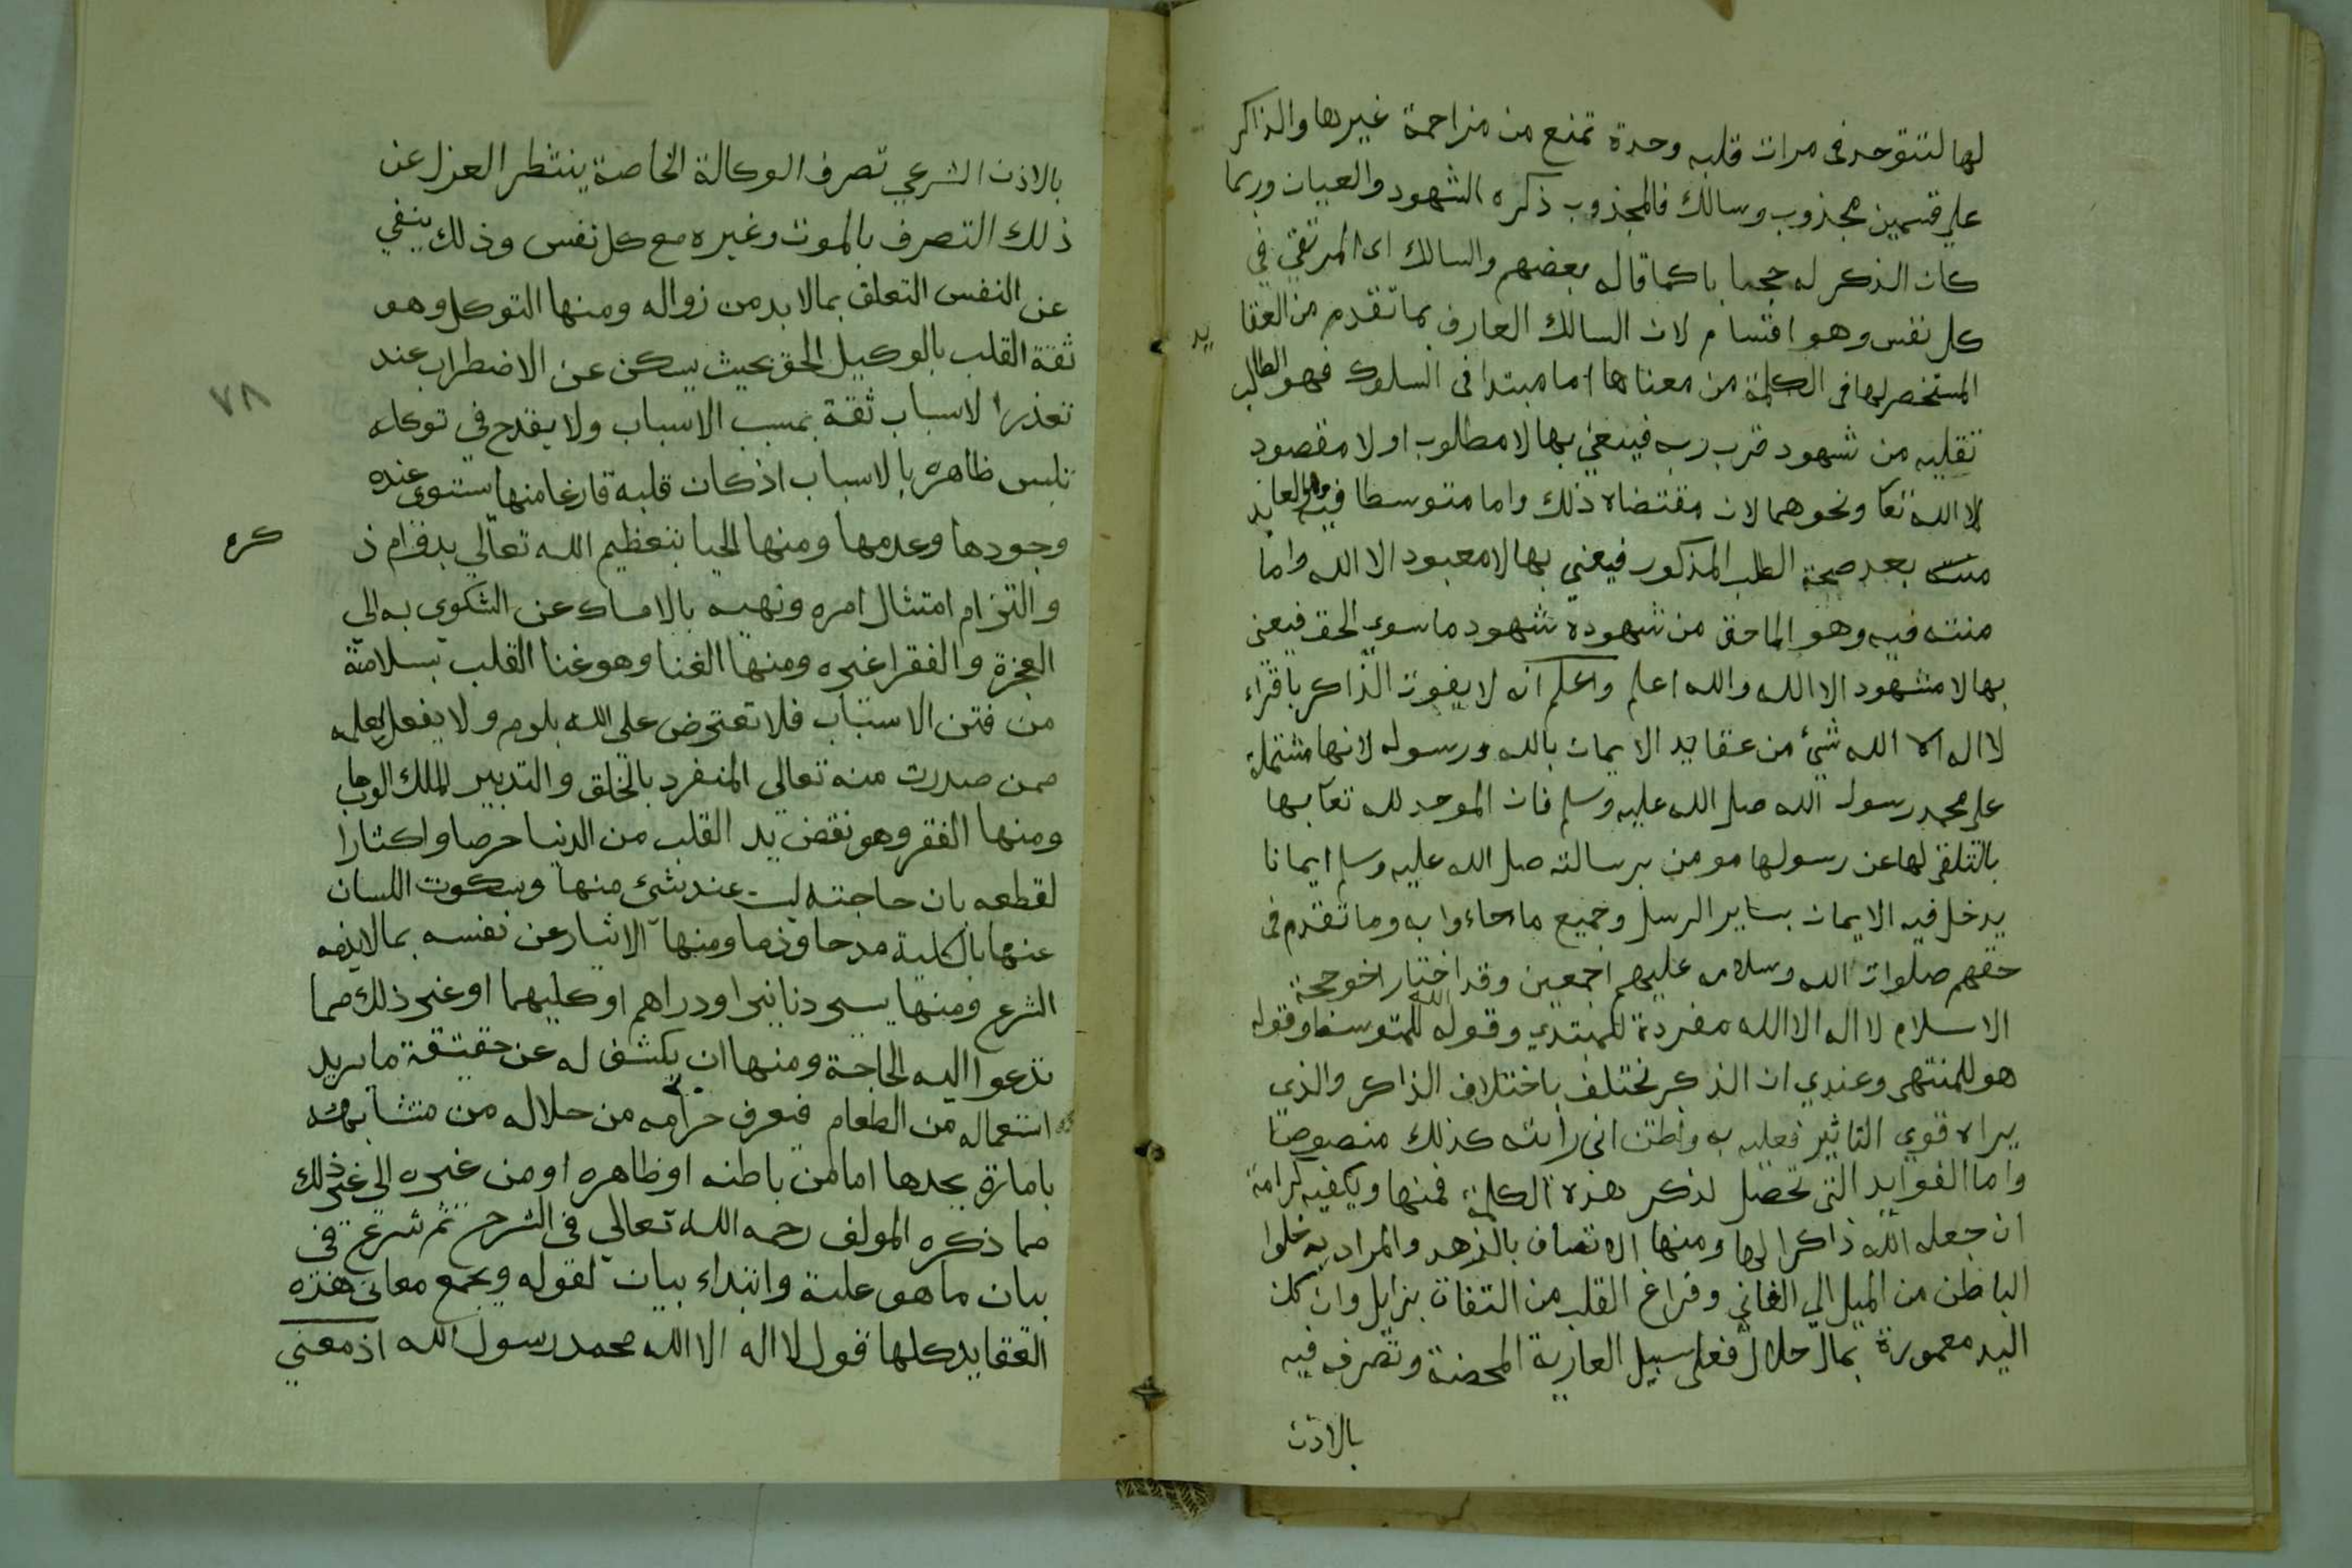 لها لتتوحد في مرات قلبه وحدة تمنع من مزاحمة غيرها والذاكر
علي قسمين مجذوب وسالك فالمجذوب ذكره الشهود والعيان وربما
كان الذكر له حجابا كما قاله بعضهم والسالك اى المرتقي في
كل نفس وهو اقسام لان السالك العارف بما تقدم من العقايد
المستحضر لها في الكلمة من معناها اما مبتدا في السلوك فهو الطالب
تقلبه من شهود قرب ربه فيعني بها لا مطلوب او لا مقصود
الا الله تعا ونحوهما لان مقتضاه ذلك واما متوسطا فيه وهو العابد
منته بعد صحة الطلب المذكور فيعني بها لا معبود الا الله واما
منته فيه وهو الماحق من شهوده شهود ما سوي الحق فيعنى
بها لا مشهود الا الله والله اعلم واعلم انه لا يفوت الذاكر باقراء
لا اله الا الله شئ من عقايد الايمان بالله ورسوله لانها مشتملة
على محمد رسول الله صلى الله عليه وسلم فان الموحد لله تعا بها
بالتلقى لها عن رسولها مومن برسالته صلى الله عليه وسلم ايمانا
يدخل فيه الايمان بساير الرسل وجميع ما جاءوا به وما تقدم في
حقهم صلوات الله وسلامه عليهم اجمعين وقد اختار اخو حجة
الاسلام لا اله الا الله مفردة للمبتدي وقوله الله للمتوسط وقوله
هو للمنتهى وعندي ان الذكر يختلف باختلاف الذاكر والذي
يراه قوي التاثير فعليه به واظن انى رأيته كذلك منصوصا
واما الفوايد التى تحصل لذكر هذه الكلمة فمنها ويكفيه كرامة
ان جعله الله ذاكرا لها ومنها الاتصاف بالزهد والمراد به خلوا
الباطن من الميل الي الفاني وفراغ القلب من التفات بزايل وان كان
اليد معمورة بمال حلال فعلى سبيل العارية المحضة وتصرفه فيه
بالاذن
بالاذن الشرعي تصرف الوكالة الخاصة ينتظر العزل عن
ذلك التصرف بالموت وغيره مع كل نفس وذلك ينفي
عن النفس التعلق بما لا بد من زواله ومنها التوكل وهو
ثقة القلب بالوكيل الحق بحيث يسكن عن الاضطراب عند
تعذر الاسباب ثقة بمسبب الاسباب ولا يقدح في توكله
٧٨
تلبس ظاهره بالاسباب اذ كان قلبه فارغا منها يستوى عنده
وجودها وعدمها ومنها الحيا بتعظيم الله تعالي بدوام ذكره
والتزام امتثال امره ونهيه بالامساك عن الشكوى به الي
العجزة والفقرا غيره ومنها الغنا وهو غنا القلب بسلامة
من فتن الاسباب فلا تعترض على الله بلوم ولا بفعل لعلمه
ممن صدرت منه تعالي المنفرد بالخلق والتدبير للملك الوهاب
ومنها الفقر وهو نفض يد القلب من الدنيا حرصا واكثارا
لقطعه بان حاجته ليست عند شئ منها وسكوت اللسان
عنها بالكلية مدحا وذما ومنها الايثار عن نفسه بما لا يذمه
الشرع ومنها يسير دنانير او دراهم او كليهما او غير ذلك مما
تدعوا اليه الحاجة ومنها ان يكشف له عن حقيقة ما يريد
استعماله من الطعام فيعرف حرامه من حلاله من متشابهه
بامارة يجدها اما من باطنه او ظاهره او من غيره الي غير ذلك
مما ذكره المولف رحمه الله تعالي في الشرح ثم شرع في
بيان ما هو علية وابتداء ببيان لقوله ويجمع معاني هذه
العقايد كلها قول لا اله الا الله محمد رسول الله اذ معني